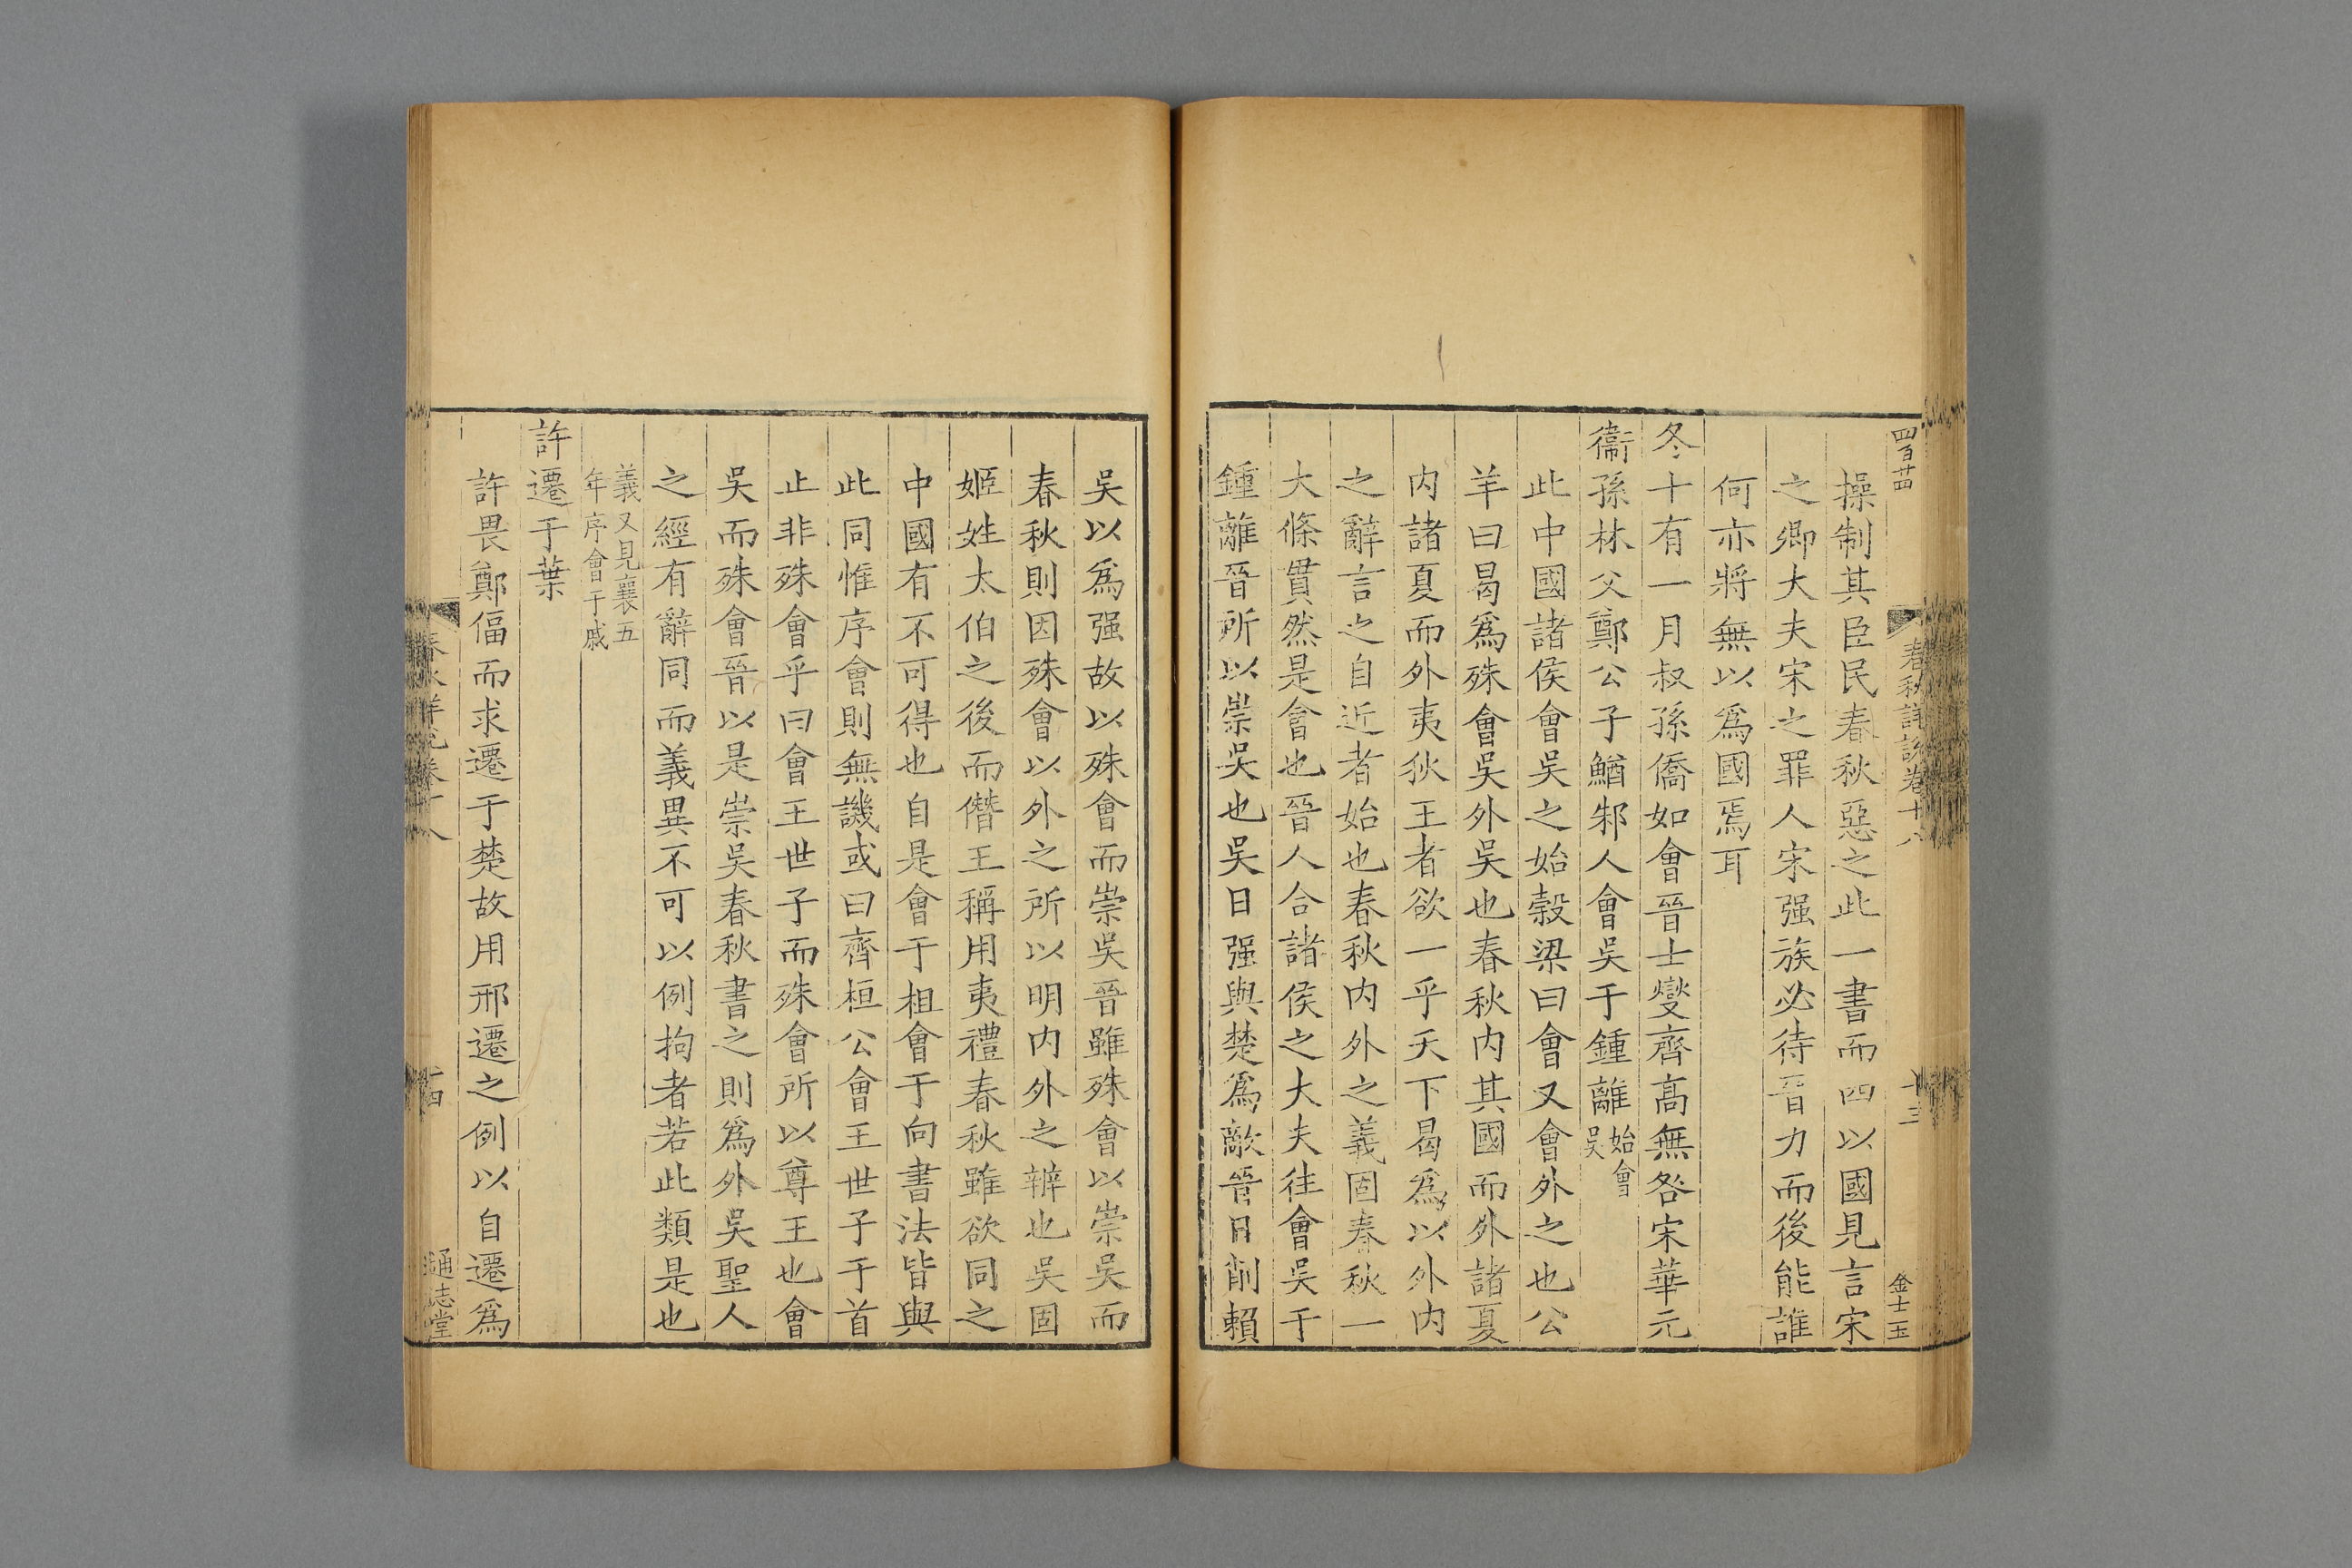 四百廿四
春秋詳說卷十八
十三
金士玉
操制其臣民春秋惡之此一書而四以國見言宋
之卿大夫宋之罪人宋强族必待晉力而後能誰
何亦將無以爲國焉耳
冬十有一月叔孫僑如會晉士燮齊高無咎宋華元
衞孫林父鄭公子鰌邾人會吳于鍾離始會
吳
此中國諸侯會吳之始穀梁曰會又會外之也公
羊曰曷爲殊會吳外吳也春秋内其國而外諸夏
内諸夏而外夷狄王者欲一乎天下曷爲以外内
之辭言之自近者始也春秋内外之義固春秋一
大條貫然是會也晉人合諸侯之大夫往會吳于
鍾離晉所以崇吳也吳日强與楚爲敵晉日削賴
吳以爲强故以殊會而崇吳晉雖殊會以崇吳而
春秋則因殊會以外之所以明内外之辨也吳固
姬姓太伯之後而僭王稱用夷禮春秋雖欲同之
中國有不可得也自是會于柤會于向書法皆與
此同惟序會則無譏或曰齊桓公會王世子于首
止非殊會乎曰會王世子而殊會所以尊王也會
吳而殊會晉以是崇吳春秋書之則爲外吳聖人
之經有辭同而義異不可以例拘者若此類是也
義又見襄五
年序會于戚
許遷于葉
許畏鄭偪而求遷于楚故用邢遷之例以自遷爲
春秋詳說卷十八
十四
通志堂